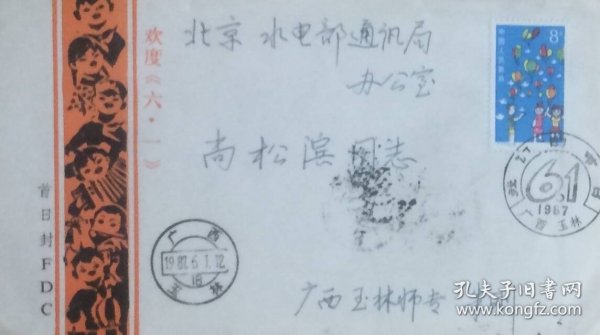 欢度《六·一》
首日封FDC
北京 水电部通讯局
办公室
尚松滨同志
广西玉林师专
8分
中国人民邮政
广西
1987.6.1.12
玉林
6.1
1987
广西 玉林
孔夫子旧书网
www.kongfz.com